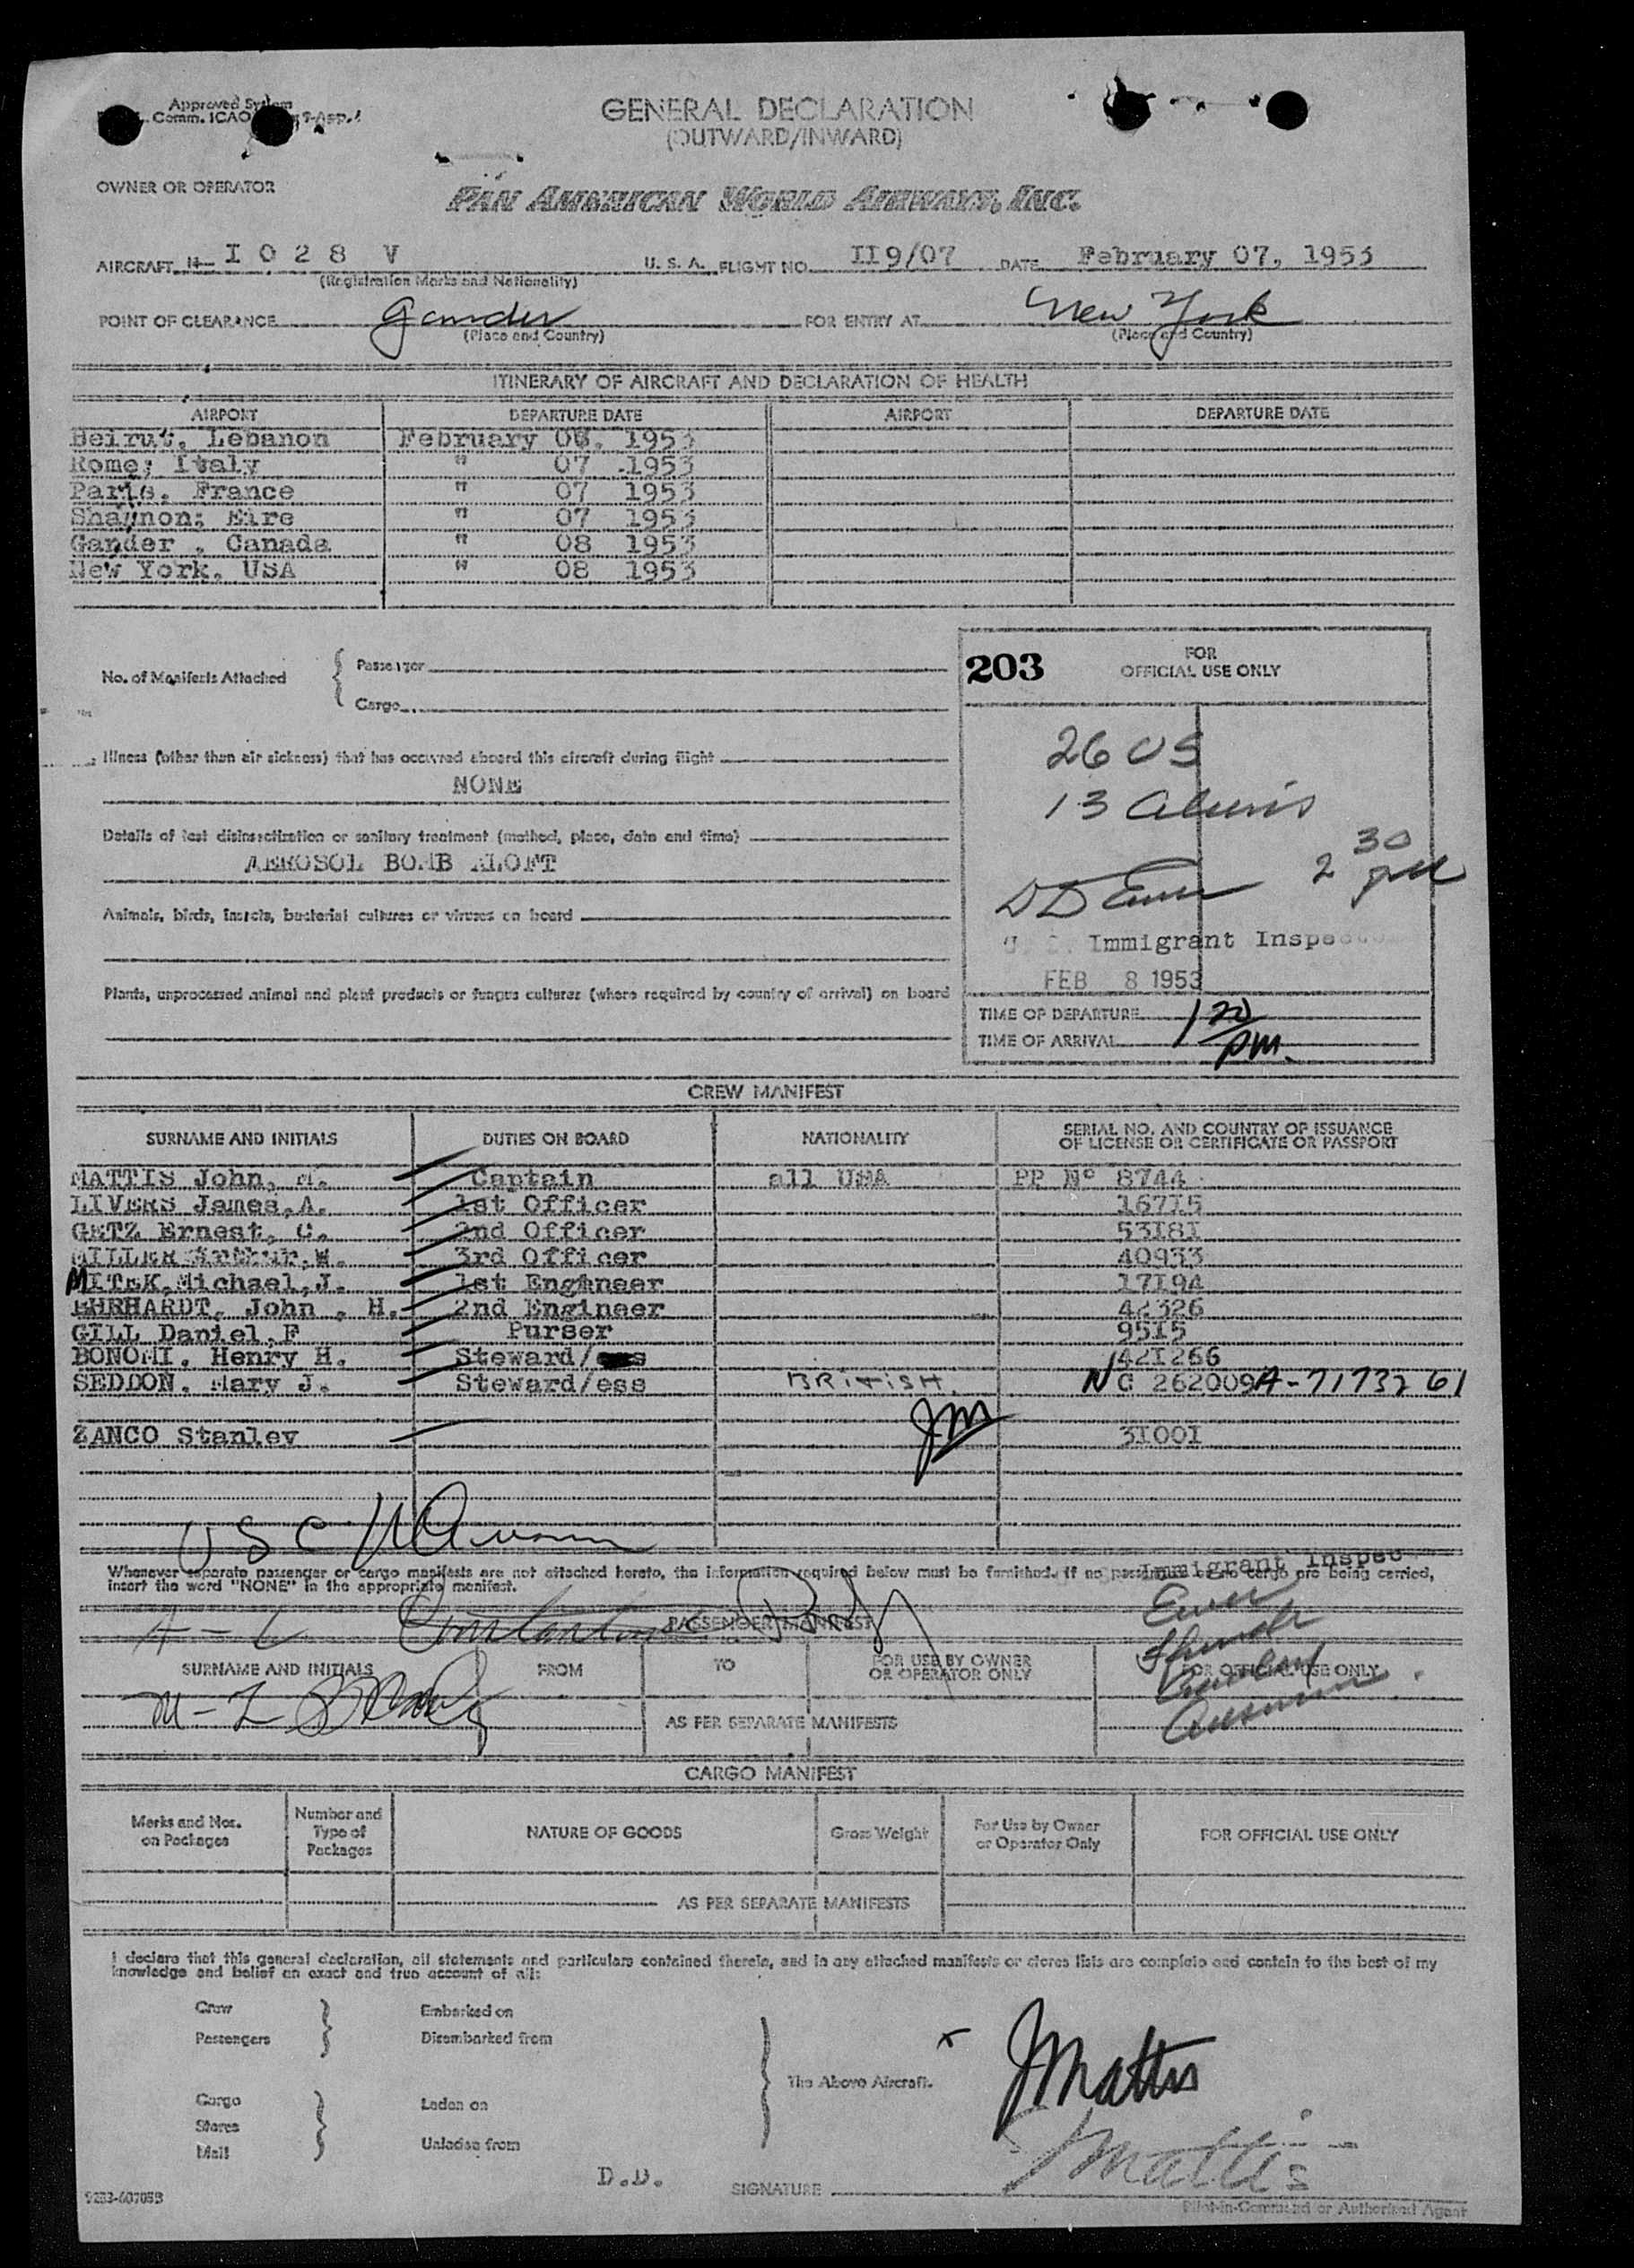 Approved System
Comm. ICAO 9-App. 1
GENERAL DECLARATION
(OUTWARD/INWARD)
OWNER OR OPERATOR
PAN AMERICAN WORLD AIRWAYS, INC.
AIRCRAFT N- I 0 2 8 V U. S. A. FLIGHT NO. II9/07 DATE February 07, 1953
(Registration Marks and Nationality)
POINT OF CLEARANCE Gander FOR ENTRY AT New York
(Place and Country) (Place and Country)
ITINERARY OF AIRCRAFT AND DECLARATION OF HEALTH
AIRPORT DEPARTURE DATE AIRPORT DEPARTURE DATE
Beirut, Lebanon February 06, 1953
Rome; Italy " 07 1953
Paris, France " 07 1953
Shannon; Eire " 07 1953
Gander , Canada " 08 1953
New York, USA " 08 1953
No. of Manifests Attached { Passenger
Cargo
203 FOR
OFFICIAL USE ONLY
26 US
13 aliens
2 30 pm
U. S. Immigrant Inspector
FEB 8 1953
TIME OF DEPARTURE
TIME OF ARRIVAL 1 20 pm.
Illness (other than air sickness) that has occurred aboard this aircraft during flight
NONE
Details of last disinsectization or sanitary treatment (method, place, date and time)
AEROSOL BOMB ALOFT
Animals, birds, insects, bacterial cultures or viruses on board
Plants, unprocessed animal and plant products or fungus cultures (where required by country of arrival) on board
CREW MANIFEST
SURNAME AND INITIALS DUTIES ON BOARD NATIONALITY SERIAL NO. AND COUNTRY OF ISSUANCE
OF LICENSE OR CERTIFICATE OR PASSPORT
MATTIS John, M. Captain all USA PP Nº 8744
LIVERS James,A. 1st Officer 167I5
GETZ Ernest, C. 2nd Officer 53I8I
MILLER Arthur,W. 3rd Officer 40933
MITEK,Michael,J. 1st Engineer I7I94
EHRHARDT, John , H. 2nd Engineer 42326
GILL Daniel,F Purser 95I5
BONOMI, Henry H. Steward/ 42I266
SEDDON, Mary J. Steward/ess BRITISH. N C 262009 A-7173261
JM
ZANCO Stanley 3I00I
USC
Whenever separate passenger or cargo manifests are not attached hereto, the information required below must be furnished. If no passengers or no cargo are being carried,
insert the word "NONE" in the appropriate manifest.
Immigrant Inspec
A - L
PASSENGER MANIFEST
Ewer
SURNAME AND INITIALS FROM TO FOR USE BY OWNER
OR OPERATOR ONLY FOR OFFICIAL USE ONLY
M - Z
AS PER SEPARATE MANIFESTS
CARGO MANIFEST
Marks and Nos.
on Packages Number and
Type of
Packages NATURE OF GOODS Gross Weight For Use by Owner
or Operator Only FOR OFFICIAL USE ONLY
AS PER SEPARATE MANIFESTS
I declare that this general declaration, all statements and particulars contained therein, and in any attached manifests or stores lists are complete and contain to the best of my
knowledge and belief an exact and true account of all:
Crew Embarked on
Passengers Disembarked from
x JMattis
The Above Aircraft.
Cargo Laden on
Stores
Mail Unladen from
JMattis
D.D.
SIGNATURE
Pilot-in-Command or Authorized Agent